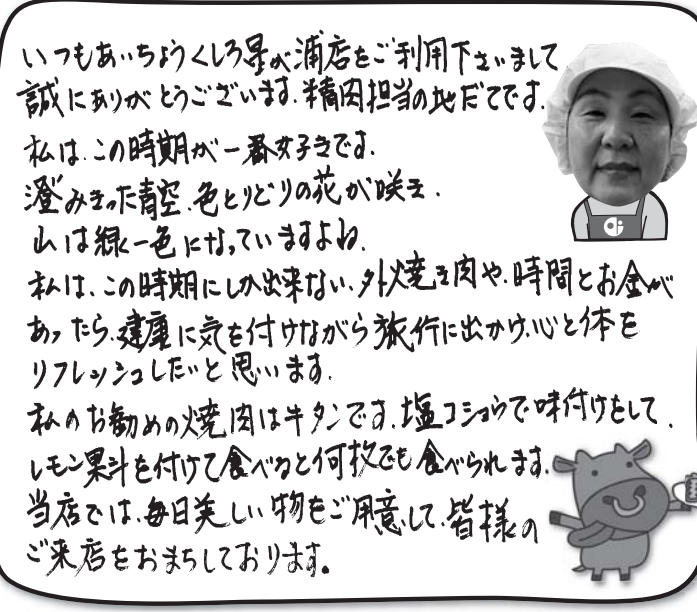 いつもあいちょうくしろ星が浦店をご利用下さいまして
誠にありがとうございます。精肉担当の地だてです。
私は、この時期が一番好きです。
澄みきった青空、色とりどりの花が咲き、
山は緑一色になっていますよね。
私は、この時期にしか出来ない、外焼き肉や、時間とお金が
あったら、健康に気を付けながら旅行に出かけ、心と体を
リフレッシュしたいと思います。
私のお勧めの焼肉は牛タンです。塩コショウで味付けをして、
レモン果汁を付けて食べると何枚でも食べられます。
当店では、毎日美しい物をご用意して、皆様の
ご来店をおまちしております。